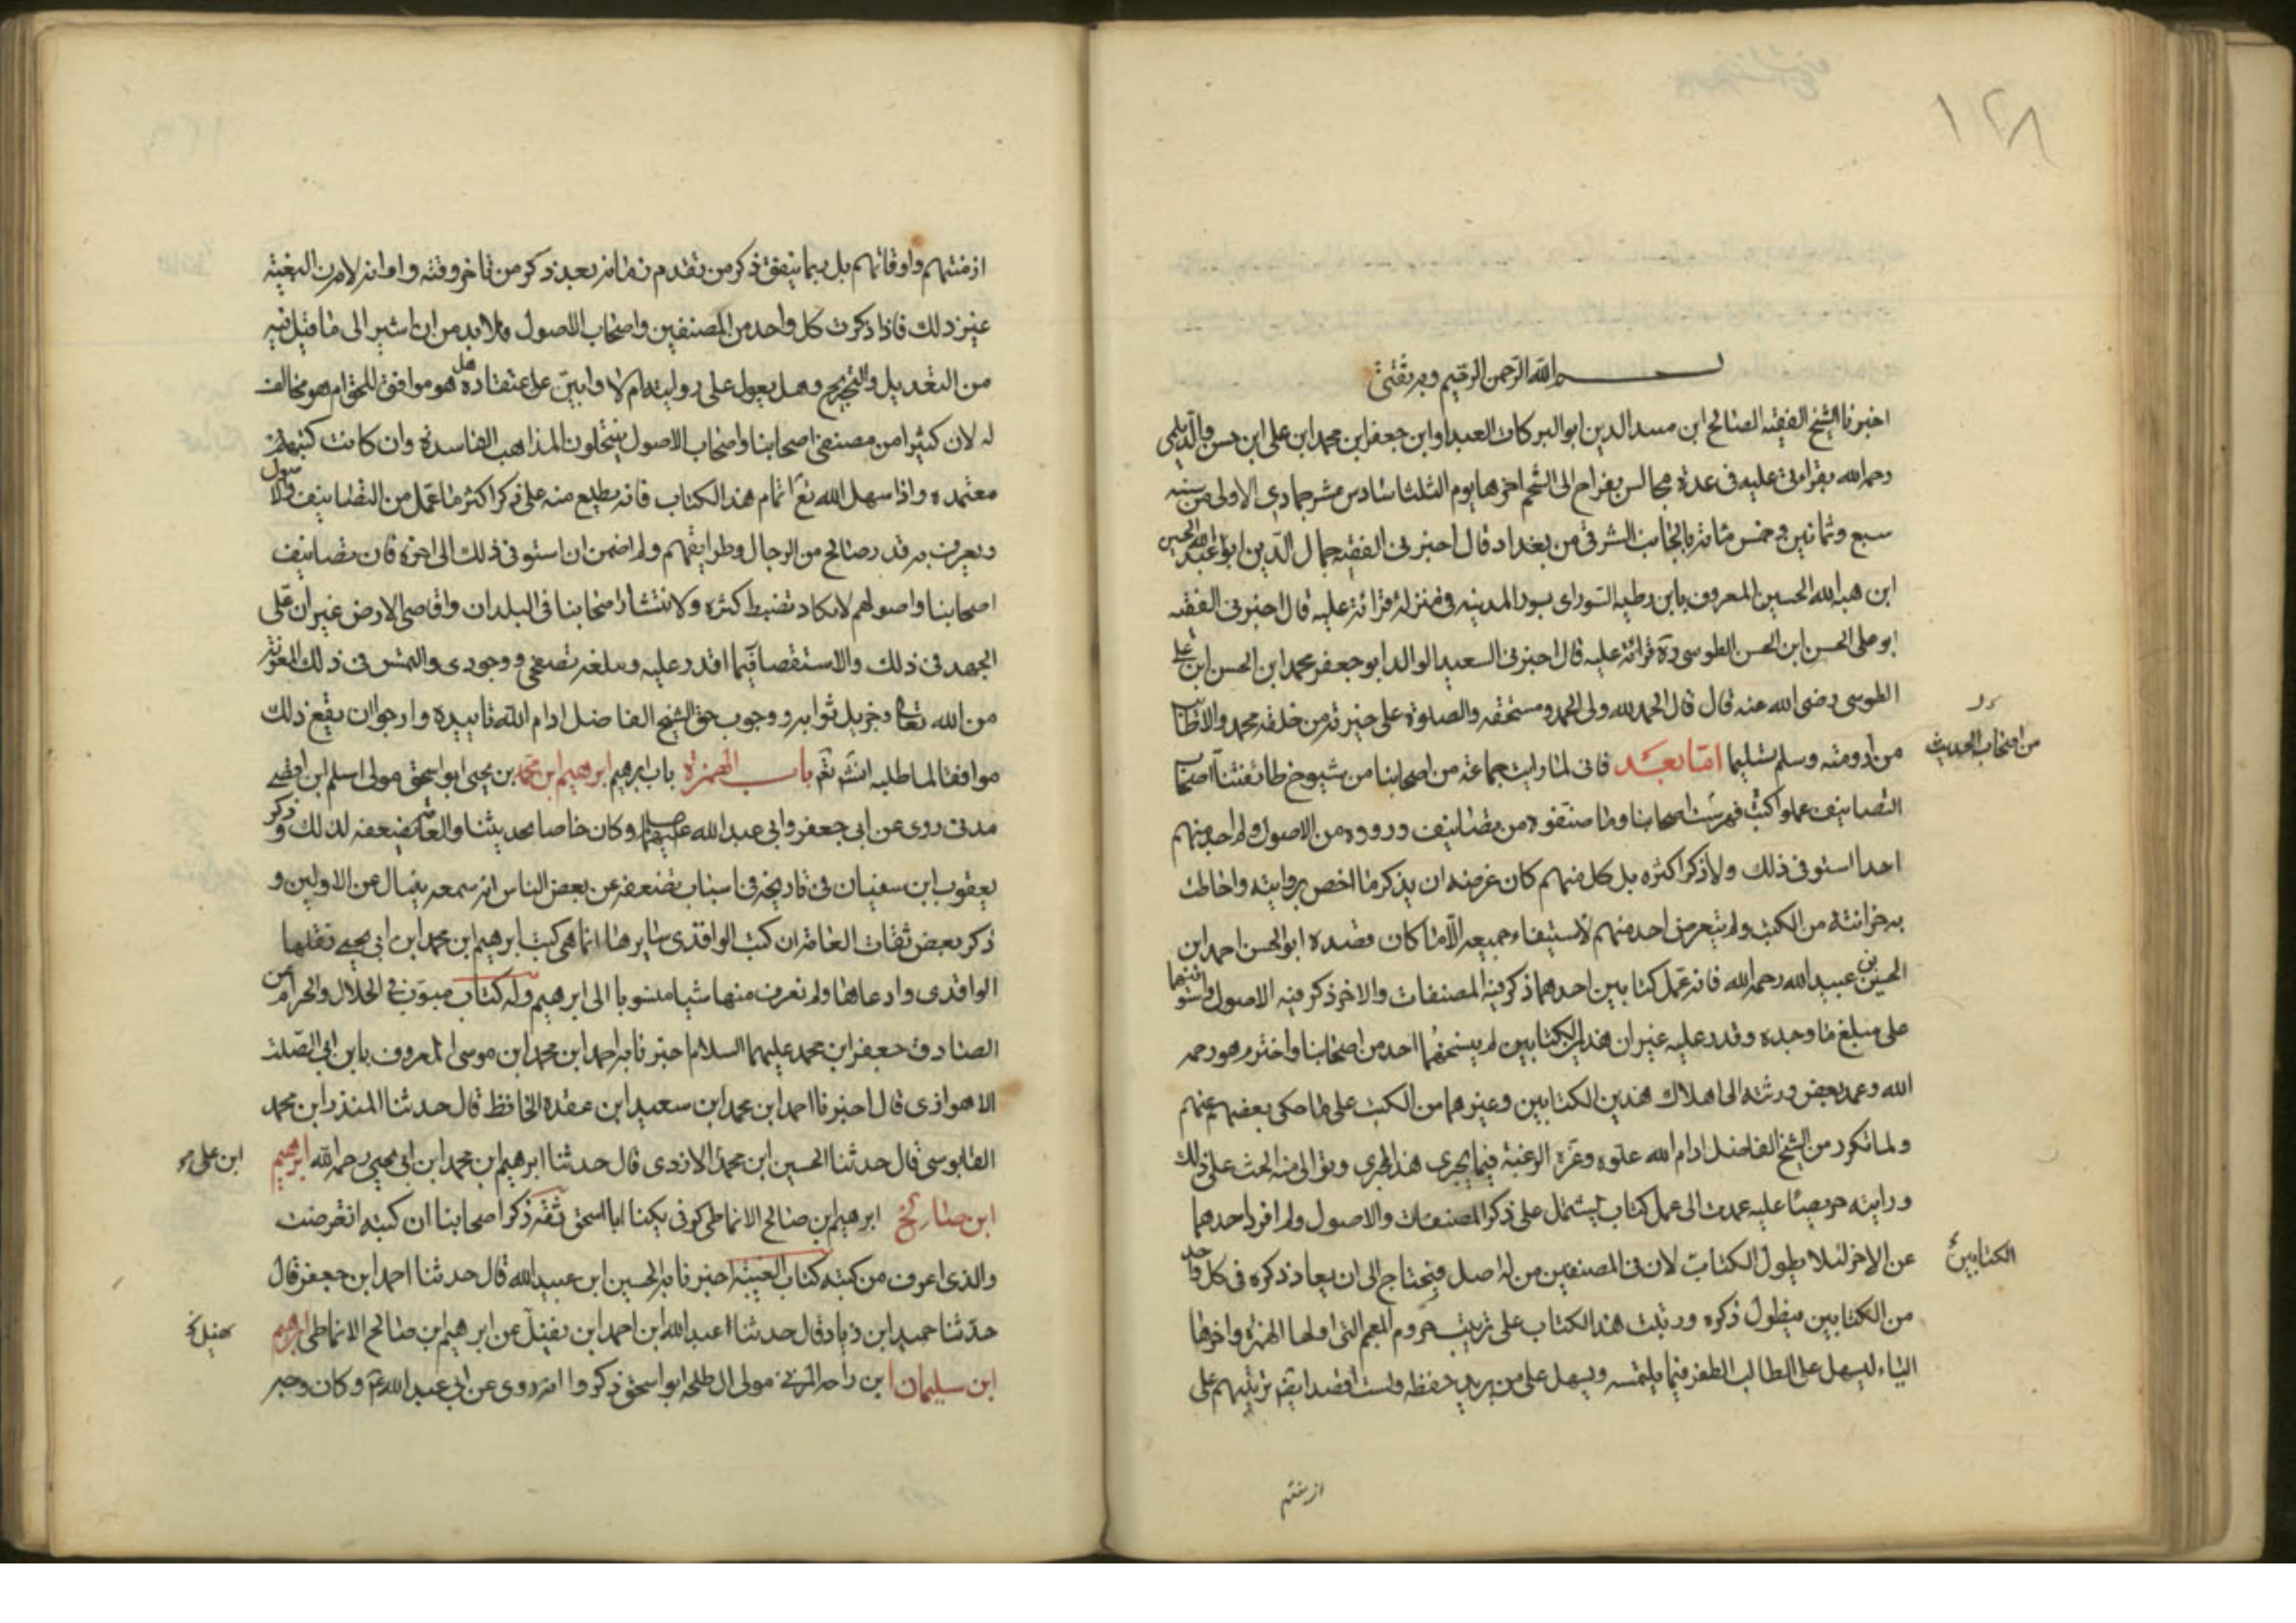 ١٢٨
بسم الله الرحمن الرحيم وبه ثقتي
اخبرنا الشيخ الفقيه الصالح ابن مسد الدين ابو البركات العبداو ابن جعفر ابن محمد ابن علي ابن حسن والديلمي
رحمه الله بقراءتي عليه في عدة مجالس اخرها يوم الثلثا سادس عشر جمادي الاولى من سنه
سبع وثمانين وخمس مائة بالجانب الشرقي من بغداد قال اخبرني الفقيه جمال الدين ابو عبد الله الحسين
ابن هبه الله الحسين المعروف بابن رطبه السوراي بسور المدينه في منزله قرائة عليه قال اخبرني الفقيه
ابو علي الحسن ابن الحسن الطوسي ره قرائة عليه قال اخبرني السعيد الوالد ابو جعفر محمد ابن الحسن ابن علي
الطوسي رضي الله عنه قال قال الحمد لله ولي الحمد ومستحقه والصلوة على خيرته من خلقه محمد والاطائب
من ارومته وسلم تسليما اما بعد فاني لما رايت جماعة من اصحابنا من شيوخ طائفتنا اصحاب
من اصحاب الحديث
التصانيف عملوا كتب فهرست اصحابنا وما صنفوه من تصانيف ورووه من الاصول ولم اجد منهم
احدا استوفى ذلك ولا ذكر اكثره بل كل منهم كان غرضه ان يذكر ما اخص بروايته واحاطت
به خزانته من الكتب ولم يتعرض احد منهم لاستيفاء جميعه الا ما كان قصده ابو الحسن احمد ابن
الحسين بن عبيد الله رحمه الله فانه عمل كتابين احدهما ذكر فيه المصنفات والاخر ذكر فيه الاصول واستوفيهما
على مبلغ ما وجده وقدر عليه غير ان هذين الكتابين لم ينسخهما احد من اصحابنا واخترم هو رحمه
الله وعمد بعض ورثته الى اهلاك هذين الكتابين وغيرهما من الكتب على ما حكى بعضهم عنهم
ولما تكرر من الشيخ الفاضل ادام الله علوه وعزه الرغبة فيما يجري هذا المجرى وتوالى منه الحث على ذلك
ورايته حريصا عليه عمدت الى عمل كتاب يشتمل على ذكر المصنفات والاصول ولم افرد احدهما
عن الاخر لئلا يطول الكتاب لان في المصنفين من له اصل فيحتاج الى ان يعاد ذكره في كل واحد
الكتابين
من الكتابين فيطول ذكره ورتبت هذا الكتاب على ترتيب حروف المعجم التي اولها الهمزه واخرها
الياء ليسهل على الطالب الظفر فيما يلتمسه ويسهل على من يريد حفظه ولست اقصد ايضا ترتيبهم على
ازمنتهم
ازمنتهم واوقاتهم بل ربما يتفق ذكر من تقدم زمانه بعد ذكر من تاخر وقته واوانه لان البغية
غير ذلك فاذا ذكرت كل واحد من المصنفين واصحاب الاصول فلا بد من ان اشير الى ما قيل فيه
من التعديل والتجريح وهل يعول على روايته ام لا وابين عن اعتقاده هل هو موافق للحق ام هو مخالف
له لان كثيرا من مصنفي اصحابنا واصحاب الاصول ينتحلون المذاهب الفاسدة وان كانت كتبهم
معتمده واذا سهل الله تع اتمام هذا الكتاب فانه يطلع منه على ذكر اكثر ما عمل من التصانيف والاصول
ويعرف به قدر صالح من الرجال وطرايقهم ولم اضمن ان استوفي ذلك الى اخره فان تصانيف
اصحابنا واصولهم لا تكاد تضبط كثره ولانتشار اصحابنا في البلدان واقاصي الارض غير ان علي
الجهد في ذلك والاستقصا فيما اقدر عليه ومبلغه تصفحي ووجودي والتمس في ذلك المعونه
من الله تعالى وجزيل ثوابه ووجوب حق الشيخ الفاضل ادام الله تاييده وارجو ان يقع ذلك
موافقا لما طلبه انشا تع باب الهمزة باب ابرهيم ابرهيم ابن محمد بن يحيى ابو اسحق مولى اسلم ابن افصى
مدني روى عن ابي جعفر وابي عبد الله عليهما وكان خاصا بحديثنا والعامه تضعفه لذلك وذكر
يعقوب ابن سفيان في تاريخه في اسباب تضعفه عن بعض الناس انه سمعه ينال عن الاولين و
ذكر بعض ثقات العامة ان كتب الواقدي سايرها انما هي كتب ابرهيم ابن محمد ابن ابي يحيى نقلها
الواقدي وادعاها ولم نعرف منها شيا منسوبا الى ابرهيم وله كتاب مبوب في الحلال والحرام عن
الصادق جعفر ابن محمد عليهما السلام اخبرنا به احمد ابن محمد ابن موسى المعروف بابن ابي الصلت
الاهوازي قال اخبرنا احمد ابن محمد ابن سعيد ابن عقده الحافظ قال حدثنا المنذر ابن محمد
القابوسي قال حدثنا الحسين ابن محمد الازدي قال حدثنا ابرهيم بن محمد ابن ابي يحيى رحمه الله ابرهيم
ابن علي
ابن صالح ابرهيم بن صالح الانماطي كوفي يكنا ابا اسحق ثقه ذكر اصحابنا ان كتبه انقرضت
والذي اعرف من كتبه كتاب الغيبه اخبرنا به الحسين ابن عبيد الله قال حدثنا احمد ابن جعفر قال
حدثنا حميد ابن زياد قال حدثنا عبد الله ابن احمد ابن نفيل عن ابرهيم ابن صالح الانماطي ابرهيم
ابن سليمان ابن داحه المزني مولى ال طلحه ابو اسحق ذكروا انه روى عن ابي عبد الله ع وكان وجه